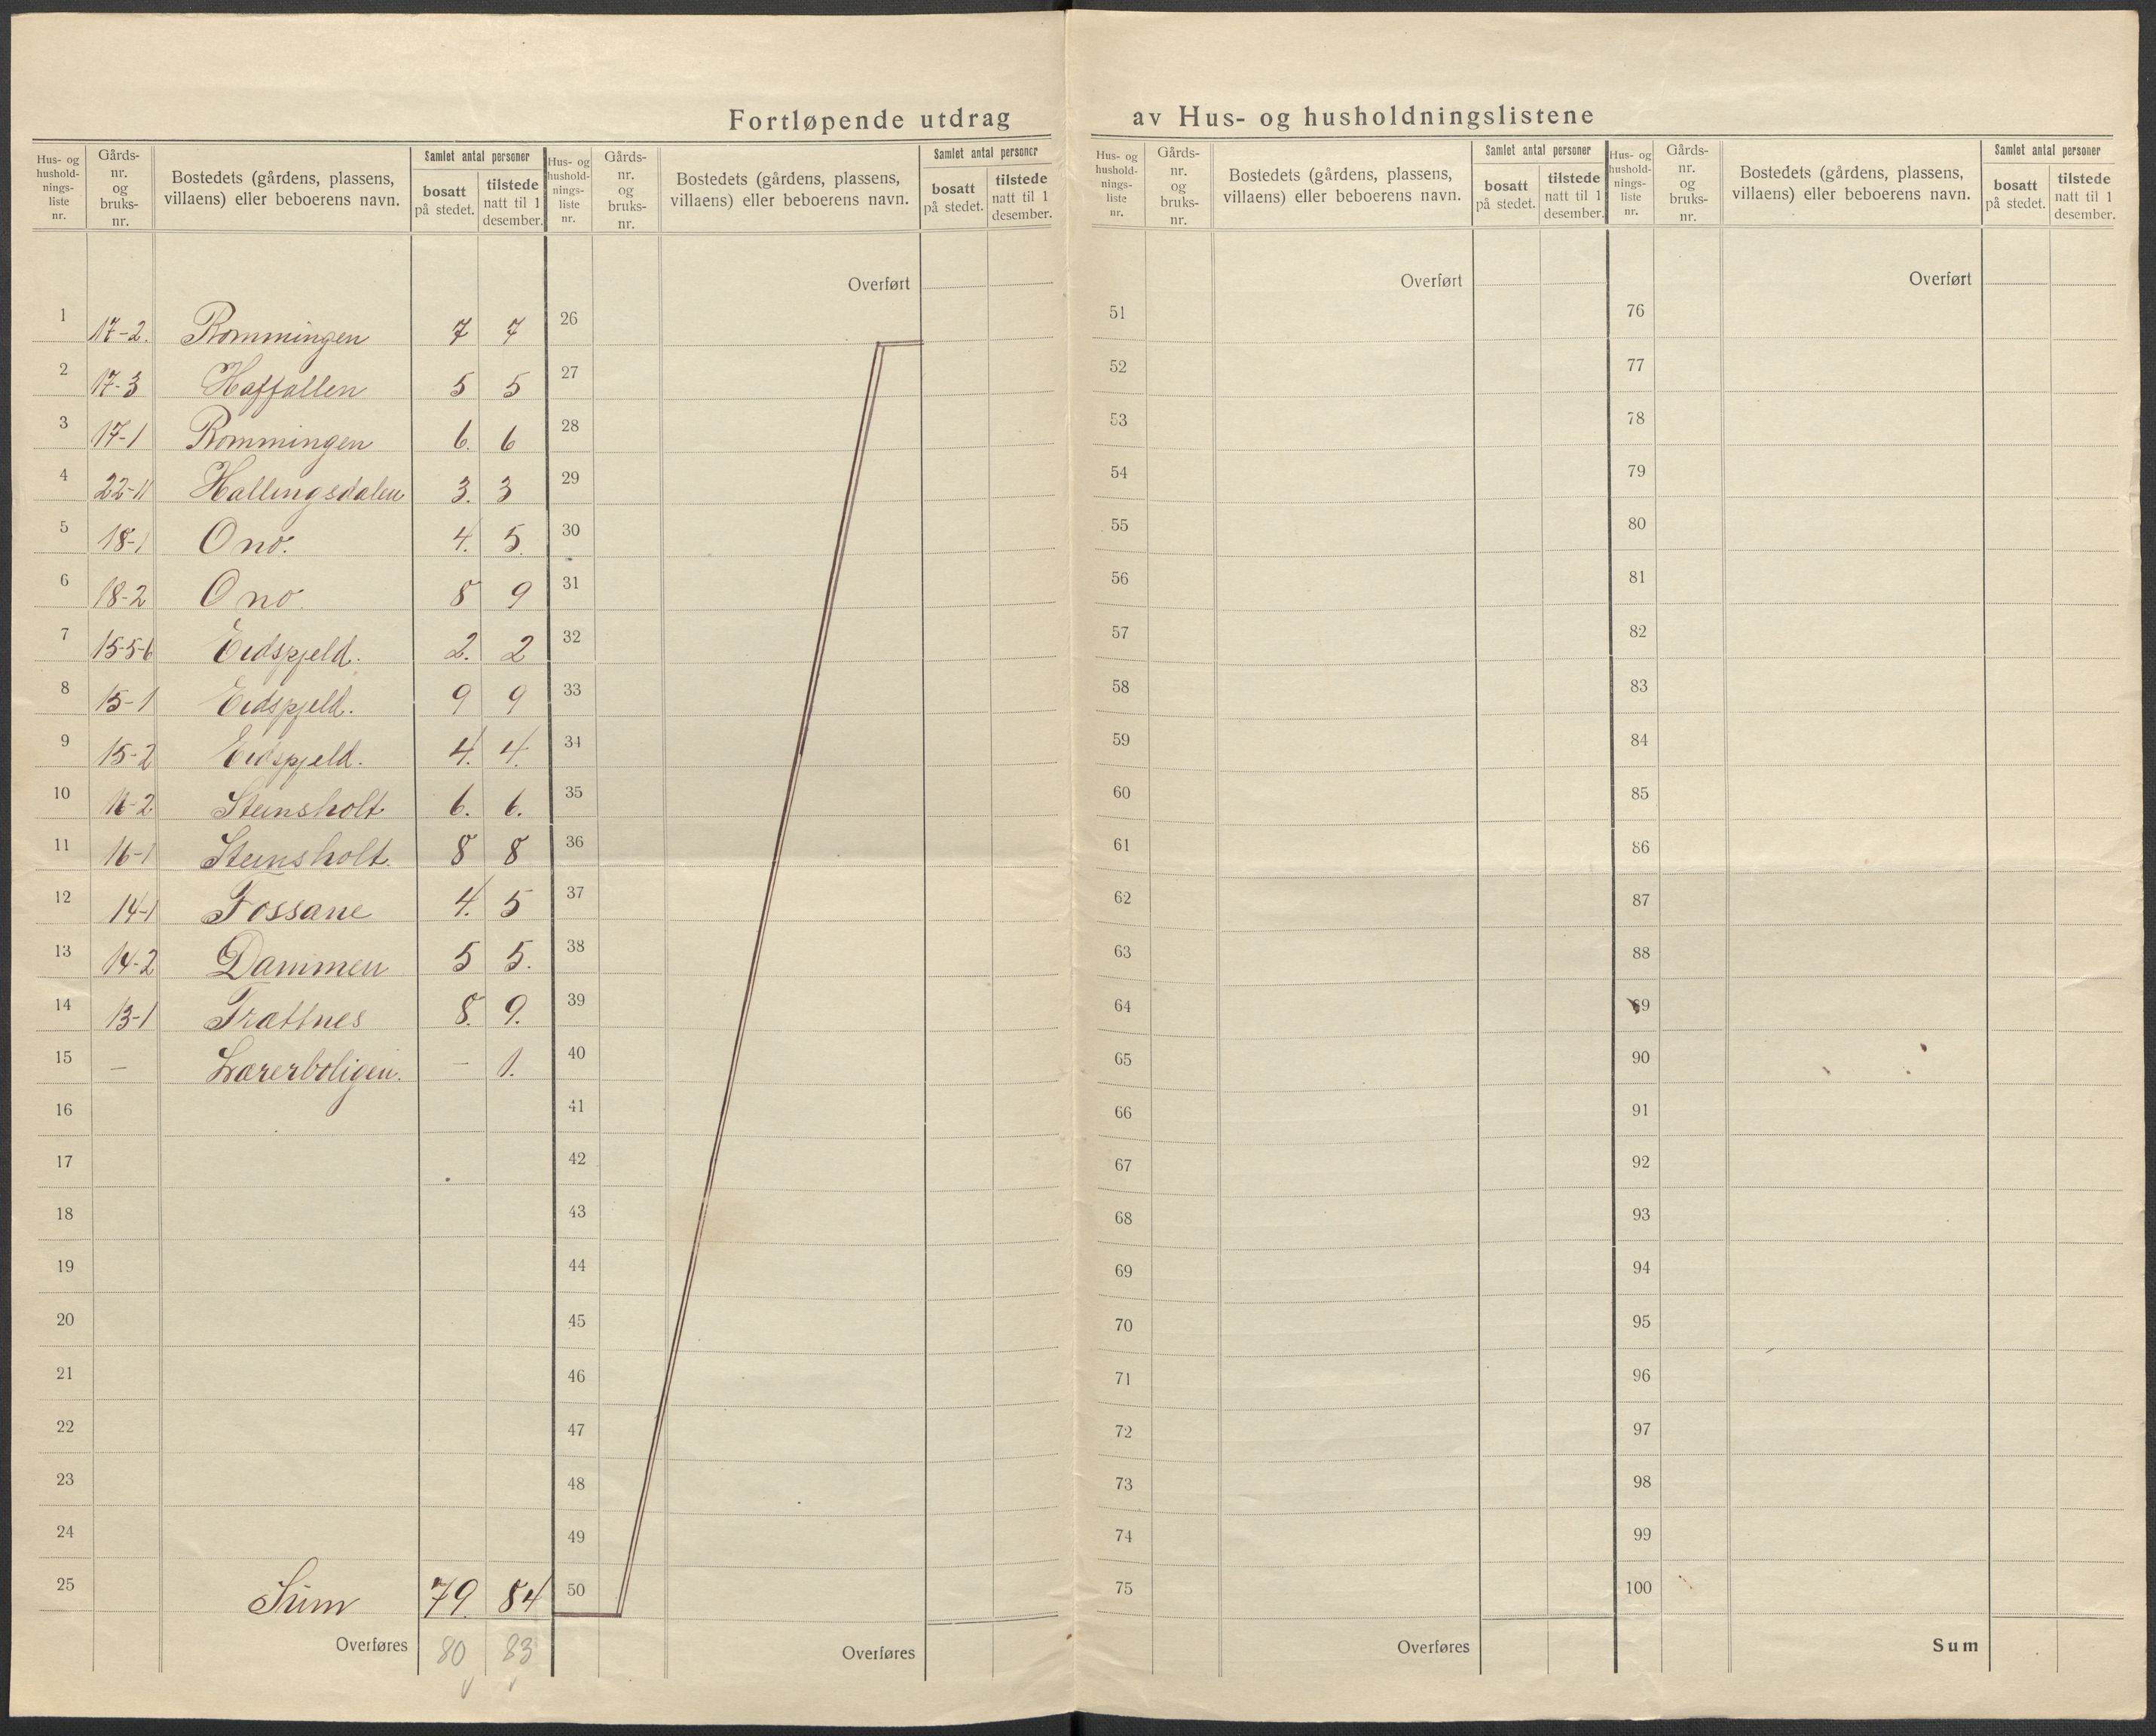 Fortløpende utdrag av Hus- og husholdningslistene
Hus- og hushold- nings- liste nr. Gårds- nr. og bruks- nr. Bostedets (gårdens, plassens, villaens) eller beboerens navn. Samlet antal personer bosatt på stedet. tilstede natt til 1 desember.
Hus- og hushold- nings- liste nr. Gårds- nr. og bruks- nr. Bostedets (gårdens, plassens, villaens) eller beboerens navn. Samlet antal personer bosatt på stedet. tilstede natt til 1 desember.
Hus- og hushold- nings- liste nr. Gårds- nr. og bruks- nr. Bostedets (gårdens, plassens, villaens) eller beboerens navn. Samlet antal personer bosatt på stedet. tilstede natt til 1 desember.
Hus- og hushold- nings- liste nr. Gårds- nr. og bruks- nr. Bostedets (gårdens, plassens, villaens) eller beboerens navn. Samlet antal personer bosatt på stedet. tilstede natt til 1 desember.
1 17-2. Rommingen 7 7
2 17-3 Haffallen 5 5
3 17-1 Rommingen 6. 6
4 22-11 Hallingsdalen 3. 3
5 18-1 Ono. 4. 5.
6 18-2 Ono. 8 9
7 15-5-6 Eidsfjeld. 2. 2
8 15-1 Eidsfjeld. 9 9
9 15-2 Eidsfjeld. 4. 4.
10 16-2 Steinsholt 6. 6.
11 16-1 Steinsholt. 8 8
12 14-1 Fossane 4. 5
13 14-2 Dammen 5 5.
14 13-1 Trattnes 8. 9.
15 — Lærerboligen. — 1.
16
17
18
19
20
21
22
23
24
25 Sum 79. 84
Overføres 80 83
Overført
26
27
28
29
30
31
32
33
34
35
36
37
38
39
40
41
42
43
44
45
46
47
48
49
50
Overføres
Overført
51
52
53
54
55
56
57
58
59
60
61
62
63
64
65
66
67
68
69
70
71
72
73
74
75
Overføres
Overført
76
77
78
79
80
81
82
83
84
85
86
87
88
89
90
91
92
93
94
95
96
97
98
99
100
Sum